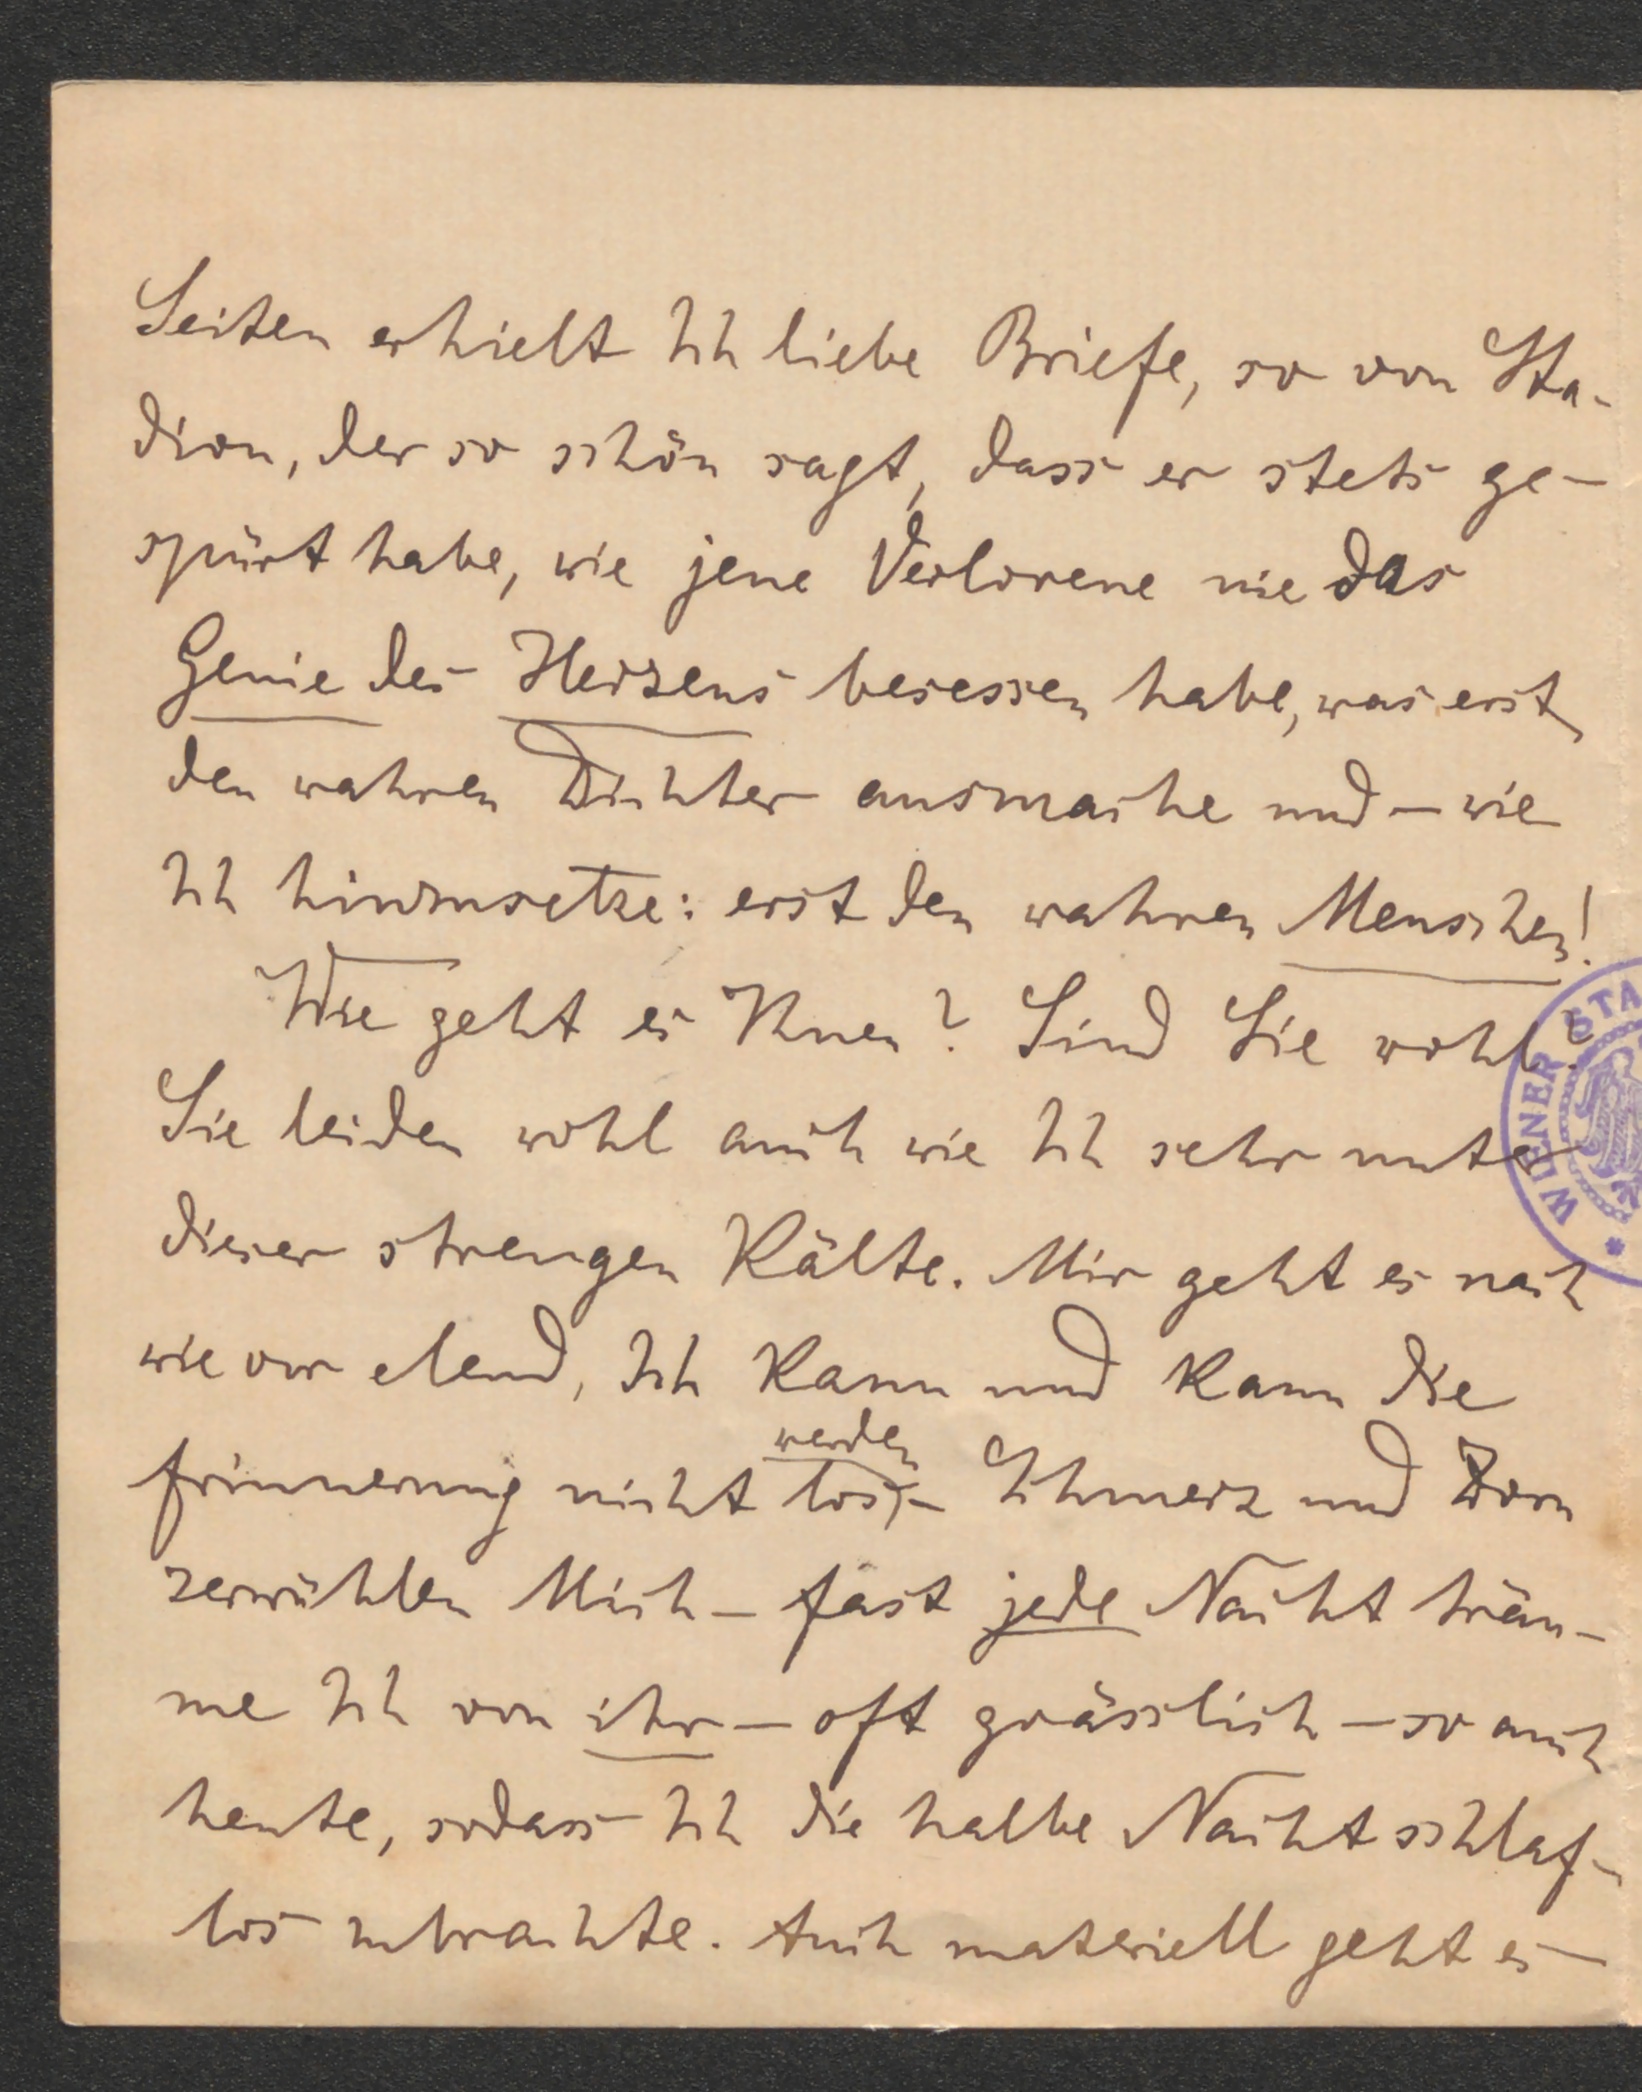 Seiten erhielt Ich liebe Briefe, so von Sta-
dion, der so schön sagt, dass er stets ge-
spürt habe, wie jene Verlorene nie das
Genie des Herzens besessen habe, was erst
den wahren Dichter ausmache und – wie
Ich hinzusetze: erst den wahren Menschen!
Wie geht es Ihnen? Sind Sie wohl?
Sie leiden wohl auch wie Ich sehr unter
dieser strengen Kälte. Mir geht es nach
wie vor elend, Ich kann und kann die
werden
Erinnerung nicht los, – Schmerz und Zorn
zerwühlen Mich – fast jede Nacht träu-
me Ich von ihr – oft grässlich – so auch
heute, sodass Ich die halbe Nacht schlaf-
los zubrachte. Auch materiell geht es
WIENER STA